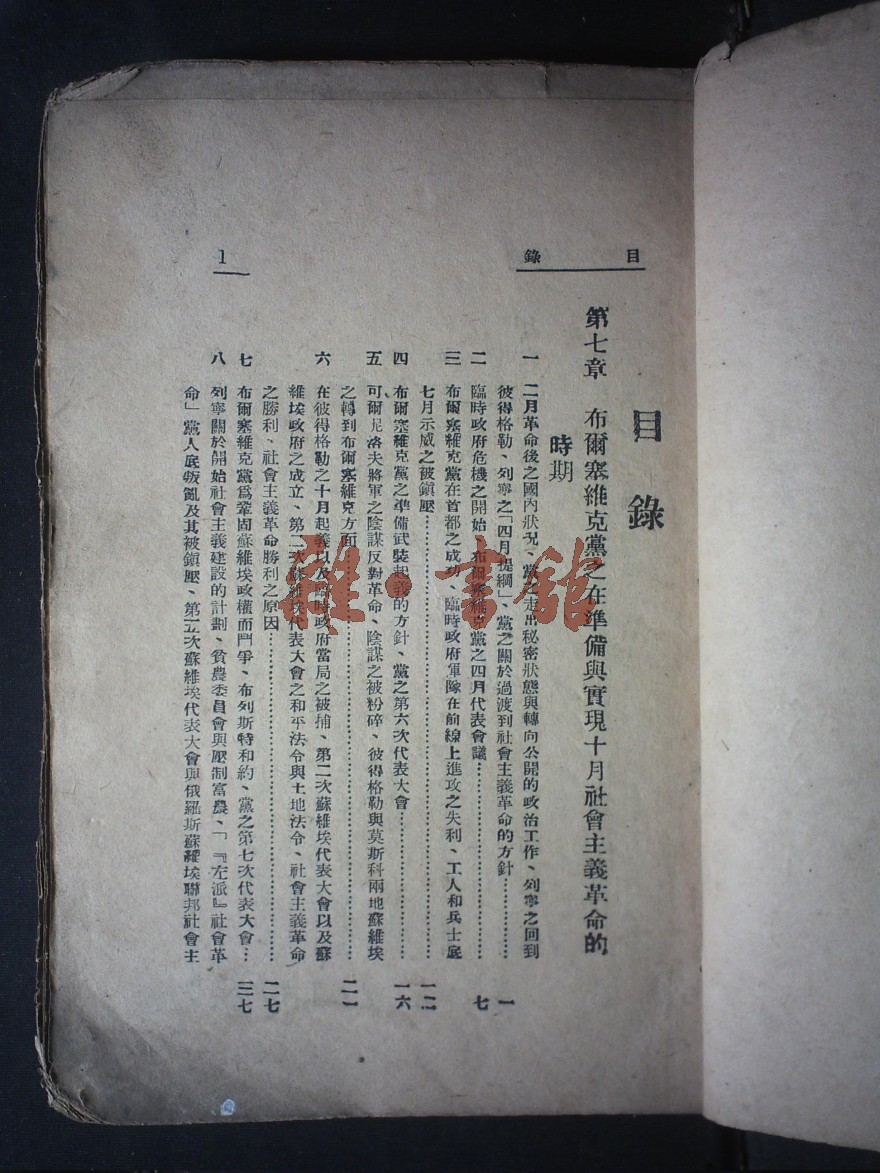 目錄
1
目錄
第七章 布爾塞維克黨之在準備與實現十月社會主義革命的
時期
一 二月革命後之國內狀况、黨之走出秘密狀態與轉向公開的政治工作、列寧之回到
彼得格勒、列寧之「四月提綱」黨之關於過渡到社會主義革命的方針…………一
二 臨時政府危機之開始 布爾塞維克黨之四月代表會議…………七
三 布爾塞維克黨在首都之成功 臨時政府軍隊在前線上進攻之失利、工人和兵士底
七月示威之被鎮壓…………一二
四 布爾塞維克黨之準備武裝起義的方針、黨之第六次代表大會…………一六
五 可爾尼洛夫將軍之陰謀反對革命、陰謀之被粉碎、彼得格勒與莫斯科兩地蘇維埃
之轉到布爾塞維克方面…………二一
六 在彼得格勒之十月起義以及臨時政府當局之被捕、第二次蘇維埃代表大會以及蘇
維埃政府之成立、第二次蘇維埃代表大會之和平法令與土地法令、社會主義革命
之勝利、社會主義革命勝利之原因…………二七
七 布爾塞維克黨爲鞏固蘇維埃政權而鬥爭、布列斯特和約、黨之第七次代表大會…三七
八 列寧關於開始社會主義建設的計劃、貧農委員會與壓制富農、「『左派』社會革
命」黨人底叛亂及其被鎮壓、第五次蘇維埃代表大會與俄羅斯蘇維埃聯邦社會主
雅·書館